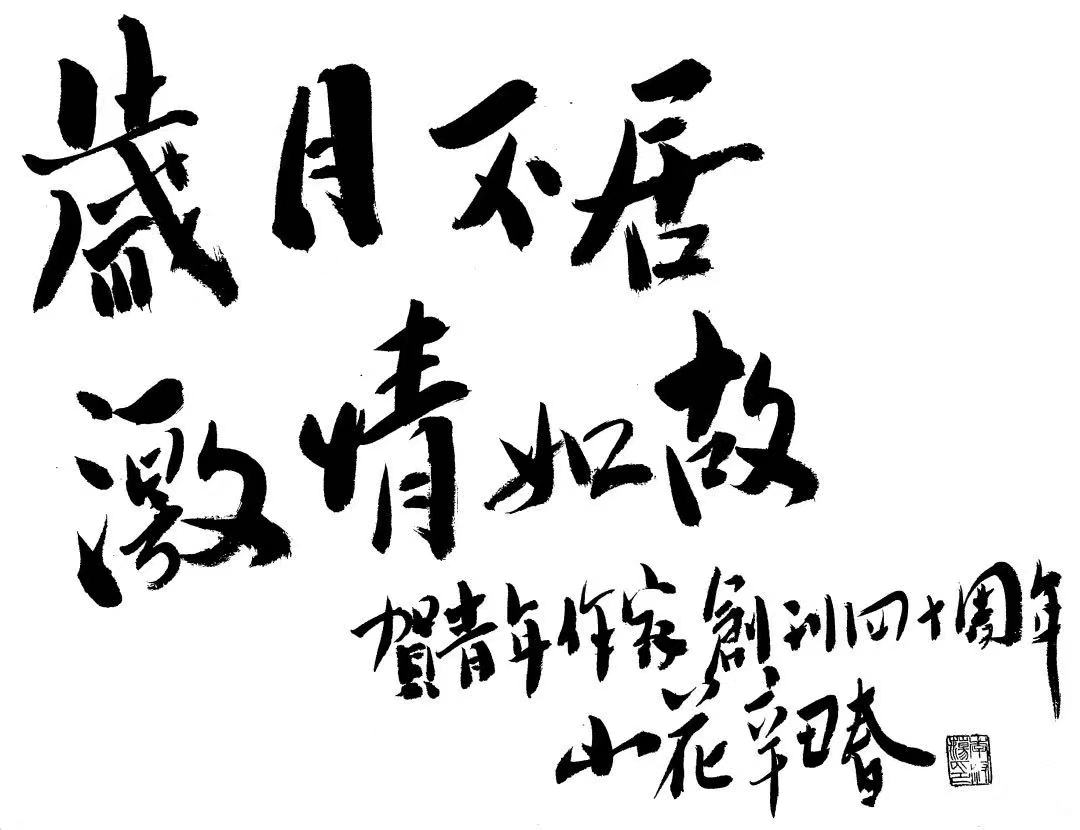 歲月不居
激情如故
賀青年作家創刊四十周年
小花辛丑春